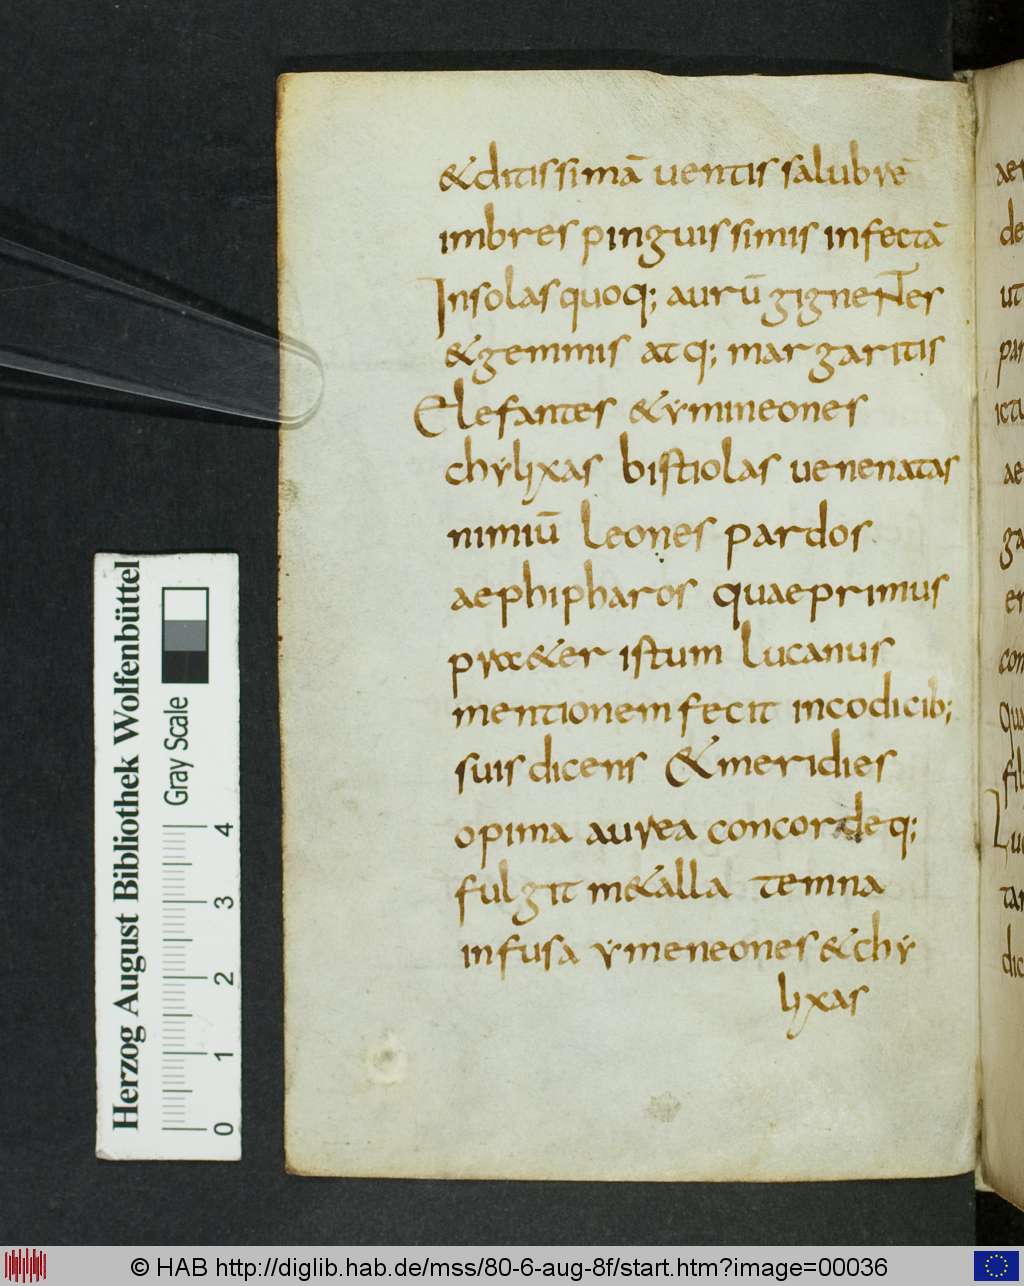 &ditissimā uentis salubrē
imbres pinguissimis infectā
Insolas quoq; aurū gignentes
&gemmis atq; margaritis
Elefantes &ymineones
chylixas bistiolas uenenatas
nimiū leones pardos
aephipharos quaeprimus
prae&er istum lucanus
mentionem fecit incodicib;
suis dicens &meridies
opima aurea concordeq;
fulgit m&alla temna
infusa ymeneones &chy
lixas
aer
de
ut
par
icti
ae
ga
er
con
qua
fil
Luc
tar
dic
Herzog August Bibliothek Wolfenbüttel
Gray Scale
0 1 2 3 4
© HAB http://diglib.hab.de/mss/80-6-aug-8f/start.htm?image=00036